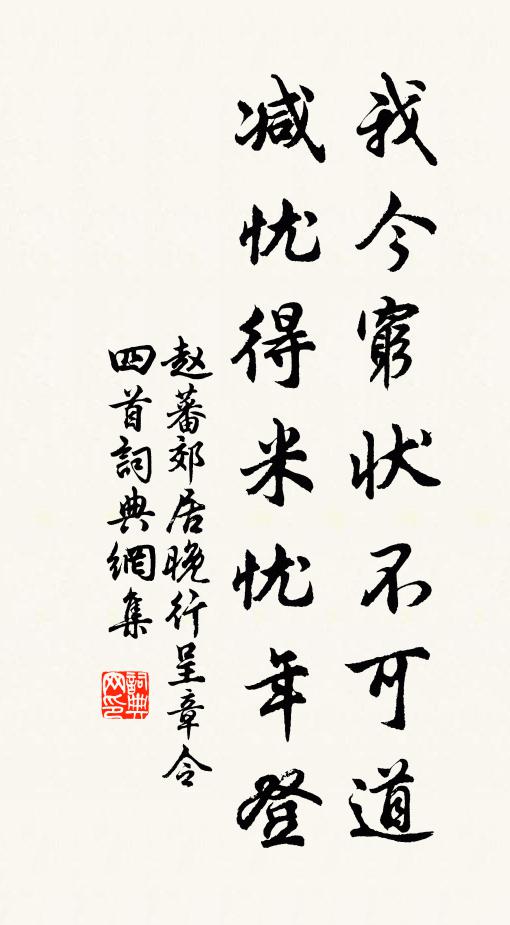 我今窮状不可道
减忧得米忧年登
赵蕃郊居晚行呈章令
四首詞典網集
詞典网印